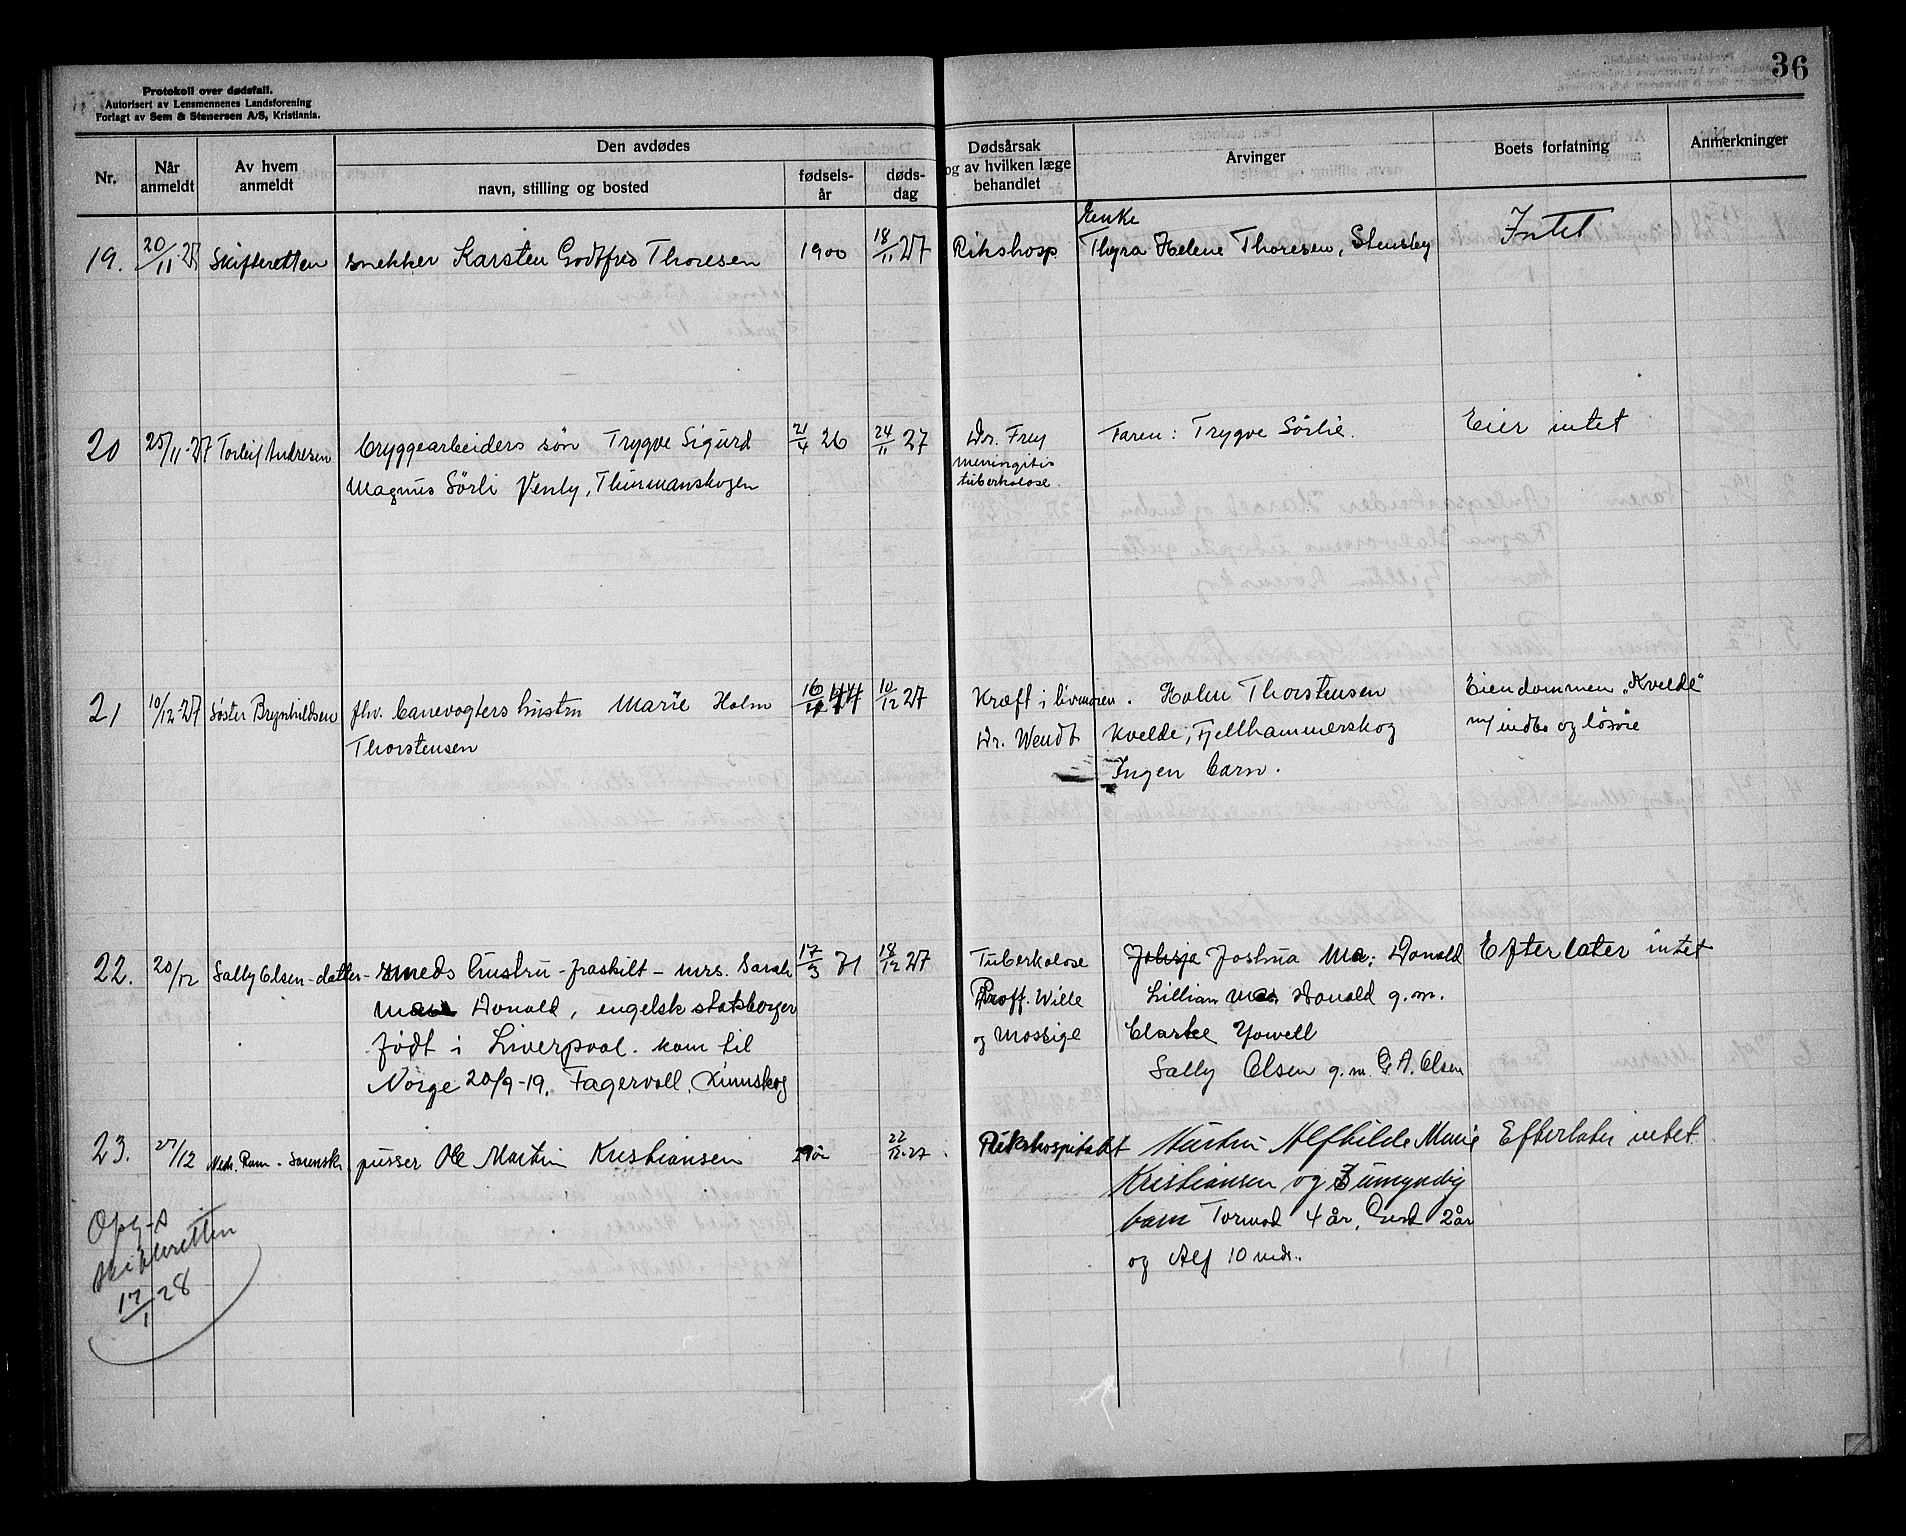 36
Protokoll over dødsfall.
Autorisert av Lensmennenes Landsforening
Forlagt av Sem & Stenersen A/S, Kristiania.
Nr.
Når anmeldt
Av hvem anmeldt
Den avdødes
navn, stilling og bosted
fødsels-år
døds-dag
Dødsårsak og av hvilken læge behandlet
Arvinger
Boets forfatning
Anmerkninger
19. 20/11-27 Skifteretten snekker Karsten Godtfred Thoresen 1900 18/11 27 Rikshosp
Enke
Thyra Helene Thoresen, Stensby
Intet
20 25/11-27 Torleif Andresen bryggearbeiders søn Trygve Sigurd
Magnus Sörli Venly, Thurmanskogen
21/4 26 24/11 27
Dr. Frey
meningitis
tuberkolose.
Faren: Trygve Sörlie.
Eier intet
21 10/12-27 Søster Brynhildsen fhv. banevogters hustru Marie Holm
Thorstensen
16/ 44 10/12 27
Kræft i livmoren.
Dr. Wendt
Holm Thorstensen
Kvelde, Fjellhammerskog
Ingen barn.
Eiendommen "Kvelde"
m/ indbo og lösöre
22. 20/12 Sally Olsen - datter - smeds hustru - fraskilt - mrs. Sarah
Donald, engelsk statsborger
født i Liverpool. kom til
Norge 20/9-19. Fagervoll
17/3 71 18/12 27
Tuberkolose
Proff. Wille
og Mossige
Joshua Mac Donald
Lillian Mac Donald g.m.
Clarke Yowell
Sally Olsen g.m. G. A. Olsen
Efterlater intet
23. 27/12 Neds. Ram. Sörensk. pusser Ole Martin Kristiansen 22/12-27
Rikshospitalet
Hustru Alfhilde Marie
Kristiansen og 3 umyndig
barn Tormod 4 år, 2 år
og Alf 10 mdr.
Efterlater intet
Opg-s
skifteretten
17/1 28